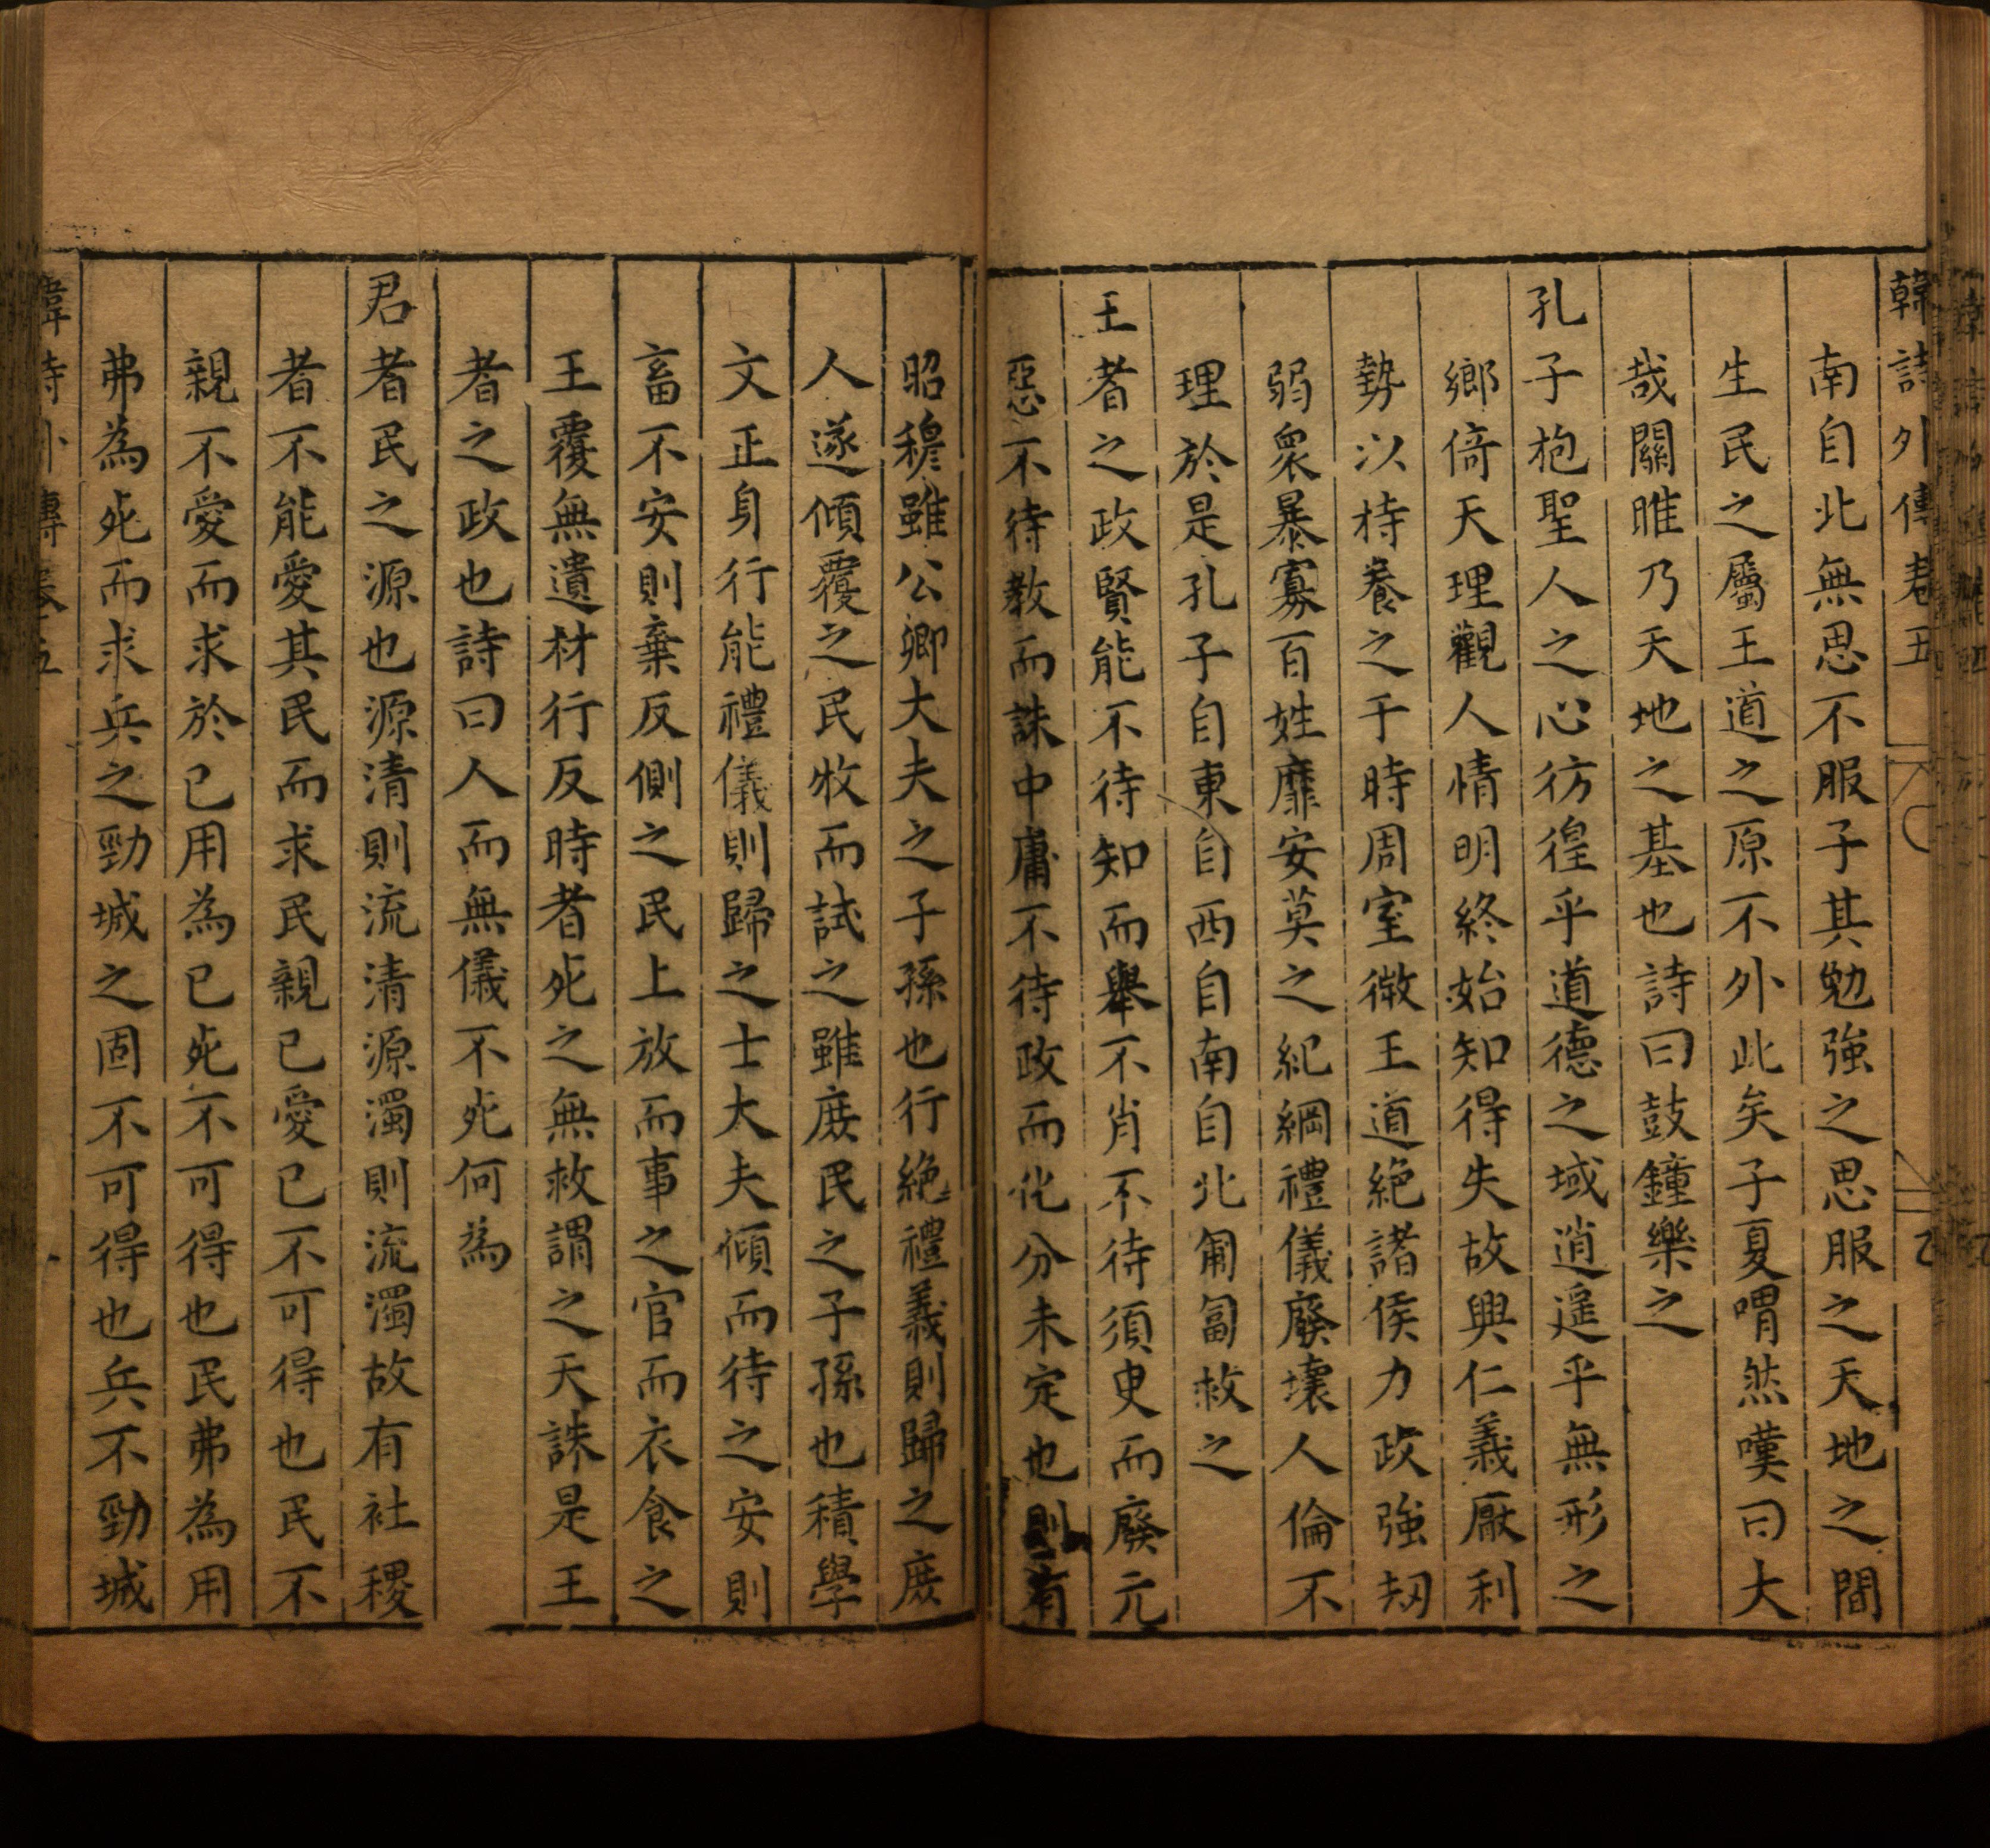 韓詩外傳卷五
南自北無思不服子其勉強之思服之天地之間
生民之屬王道之原不外此矣子夏喟然嘆曰大
哉關雎乃天地之基也詩曰鼓鐘樂之
孔子抱聖人之心彷徨乎道德之域逍遥乎無形之
鄉倚天理觀人情明終始知得失故興仁義厭利
勢以持養之于時周室微王道絶諸侯力政強刼
弱衆暴寡百姓靡安莫之紀綱禮儀廢壊人倫不
理於是孔子自東自西自南自北匍匐救之
王者之政賢能不待知而舉不肖不待須臾而廢元
惡不待教而誅中庸不待政而化分未定也則有
昭穆雖公卿大夫之子孫也行絶禮義則歸之庻
人遂傾覆之民牧而試之雖庻民之子孫也積學
文正身行能禮儀則歸之士大夫傾而待之安則
畜不安則棄反側之民上放而事之官而衣食之
王覆無遺材行反時者死之無赦謂之天誅是王
者之政也詩曰人而無儀不死何為
君者民之源也源清則流清源濁則流濁故有社稷
者不能愛其民而求民親已愛已不可得也民不
親不愛而求於已用為已死不可得也民弗為用
弗為死而求兵之勁城之固不可得也兵不勁城